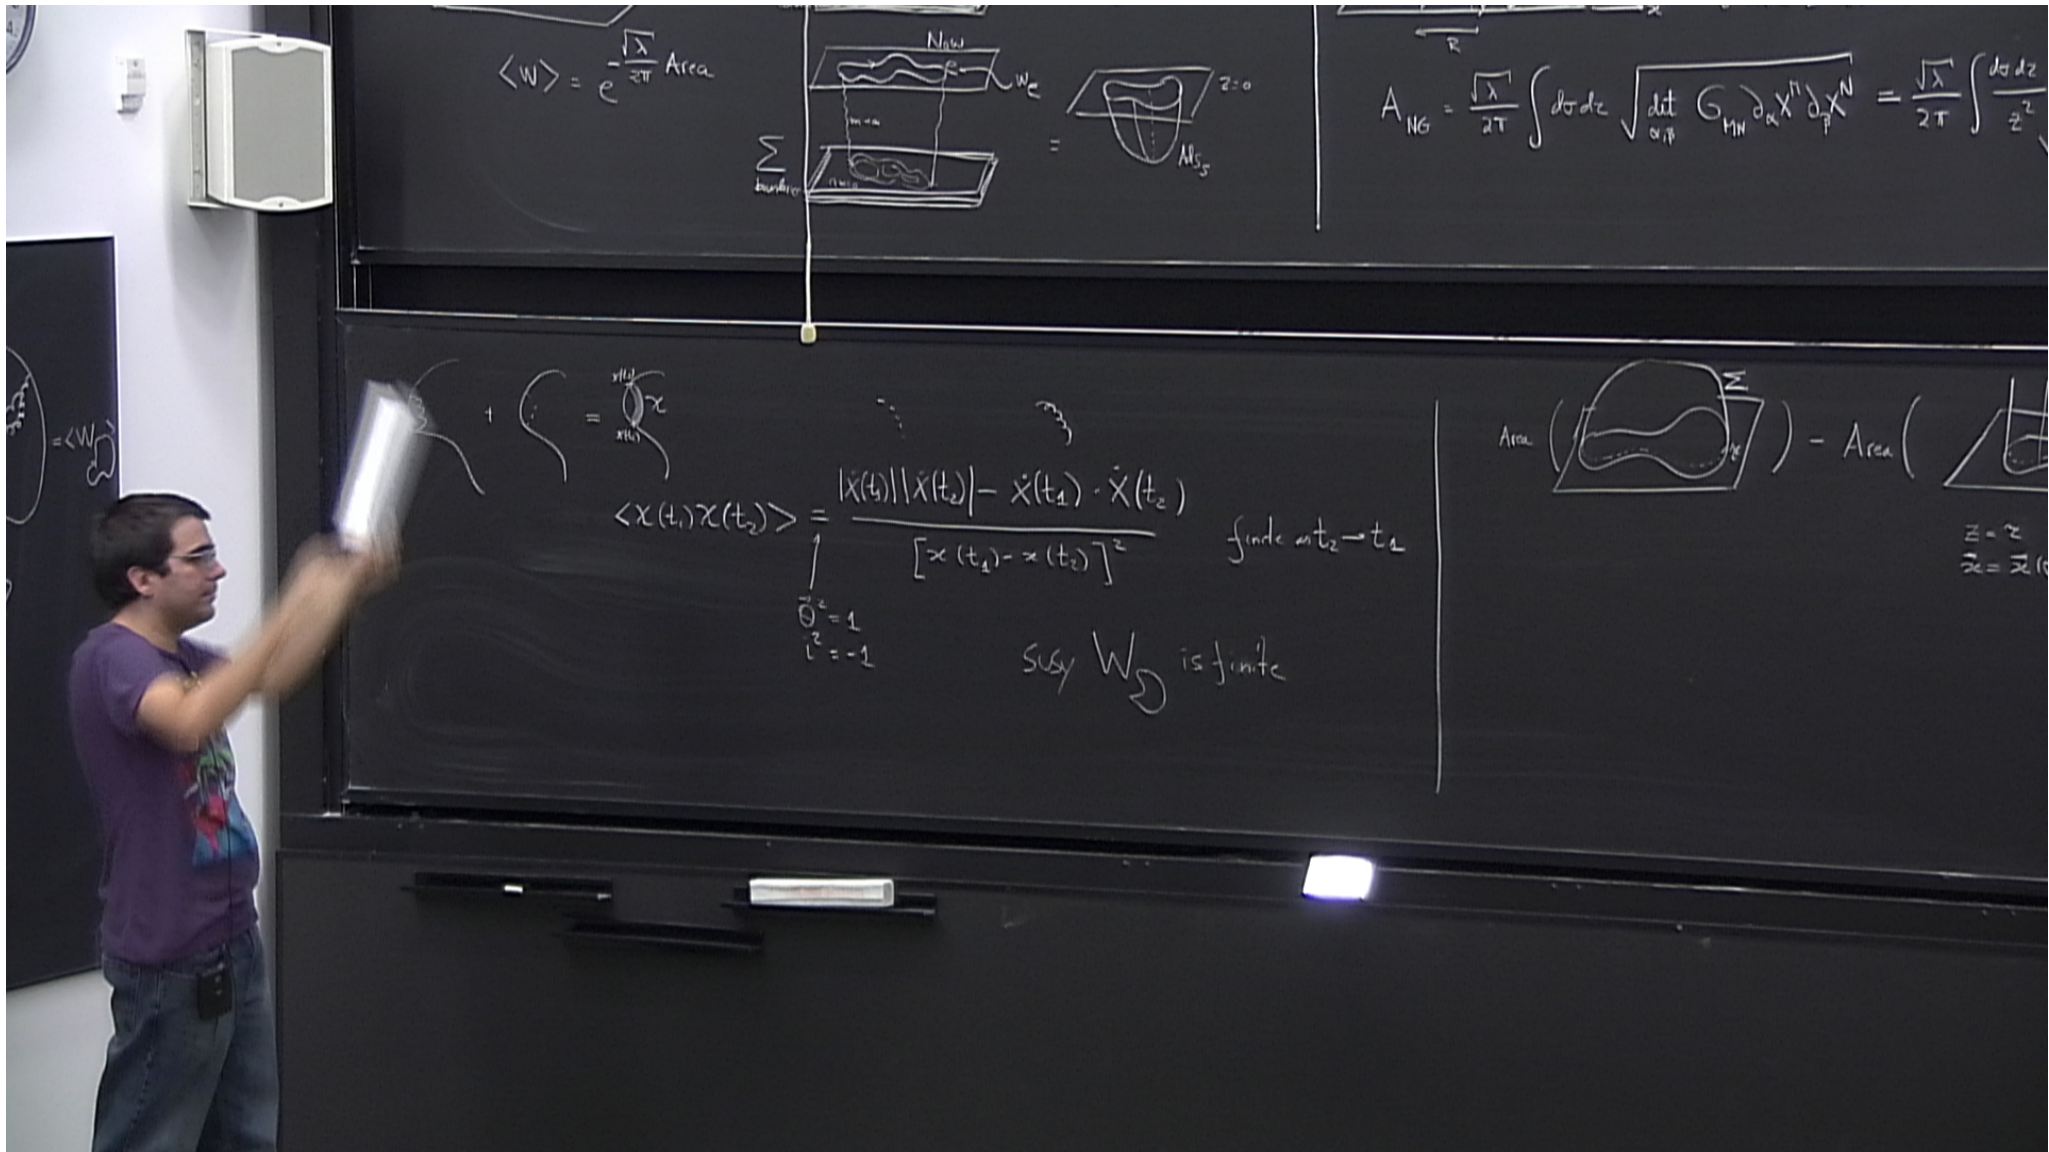 <W> = e^{-\frac{\sqrt{λ}}{2π} Area}
Now
W_e
Σ
=
z=0
AdS_5
R
A_{NG} = \frac{\sqrt{λ}}{2π} ∫ dσ dz \sqrt{\det_{α,β} G_{MN} ∂_α X^M ∂_β X^N} = \frac{\sqrt{λ}}{2π} ∫ \frac{dσ dz}{z^2}
= <W>
+ = x(t_2) χ
x(t_1)
<χ(t_1) χ(t_2)> = \frac{|ẋ(t_1)||ẋ(t_2)| - ẋ(t_1) · ẋ(t_2)}{[x(t_1) - x(t_2)]^2} finite as t_2 → t_1
θ⃗^2 = 1
i^2 = -1
susy W is finite
Area ( Σ x ) - Area (
z = z
x⃗ = x⃗(